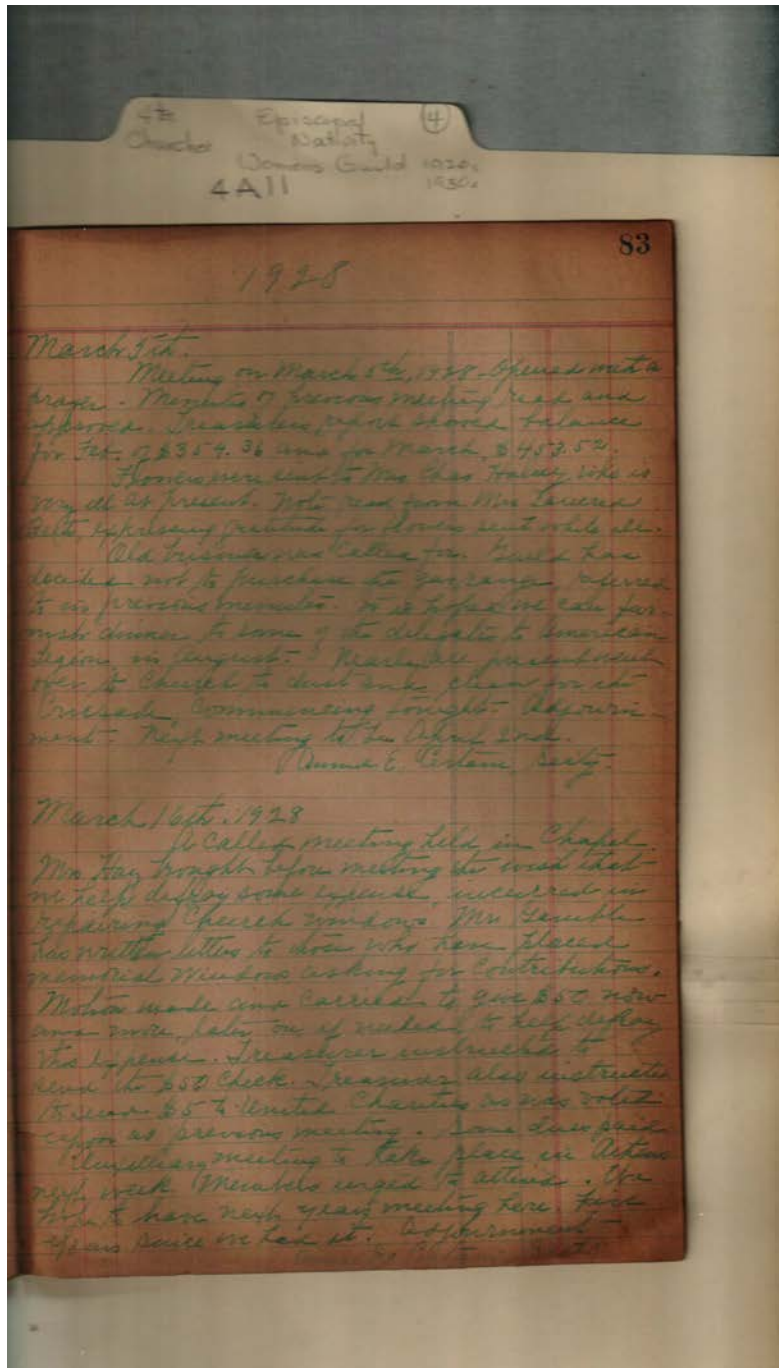 4th Episcopal ④
Churches Nativity
Womens Guild 1920s
4A11 1930s
83
1928
March 5th.
Meeting on March 5th, 1928. Opened with
prayer. Minutes of previous meeting read and
approved. Treasurers report showed balance
for Feb. of $354.36 and for March, $453.52.
Flowers were sent to Mrs Chas Halsey who is
very ill at present. Note read from Mrs
expressing gratitude for flowers sent while ill.
Old business was called for. Guild has
decided not to purchase the gas range, referred
to in previous minutes. It is hoped we can fur-
nish dinner to some of the delegates to American
Legion, in August. Nearly all present went
over to Church to dust and clean for the
Crusade, Commencing tonight. Adjourn-
ment. Next meeting to be April 2nd.
E. Secty.
March 16th. 1928
A called meeting held in Chapel.
Mrs Hay brought before meeting the wish that
we help defray some expense, incurred in
repairing Church windows. Mr Gamble
has written letters to those who have placed
memorial Windows asking for Contributions.
Motion made and Carried to give $50 now
and more, later on if needed, to help defray
this Expense. Treasurer instructed to
send the $50 Check. Treasurer also instructed
to send $5 to United Charities as was voted
upon at previous meeting. Some dues paid
Auxiliary meeting to take place in
next week Members urged to attend. We
hope to have next years meeting here. Five
years since we had it. Adjournment